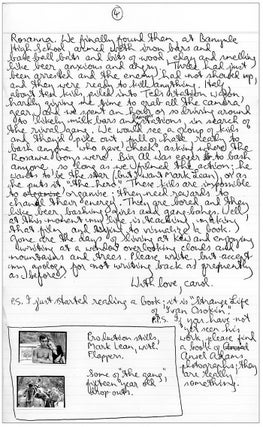 4
Rosanna. We finally found them at Banyule
High School armed with iron bars and
baseball bits and bits of wood, edgy and smelling
like beer, anxious and angry. Three had just
been arrested and the enemy had not shown up,
and they were ready to kill anything. Half
about ten kids piled into Ted's station wagon
hardly giving me time to grab all the camera
gear, and we spent an hour or so driving around
to likely milk bars & stations in search of
the rival gang. We would see a group of kids
and they'd pile out, full of hate, ready to
bash anyone who gave cheek, asking where the
Rosanna boys were. Big Al was eager to bash
anyone, so long as we filmed the action; he
wants to be the star (but I want Mark Lean), or as
he puts it "the hero". These kids are impossible
to
change their energy. They are bored and they
like beer, bashing, girls and gang-bangs. Well
at this moment my life is teaching, making
that film and trying to visualize a book.
Gone are the days of living at Kew and enjoying
writing at a window overlooking clouds and
mountains and trees. Please write, but accept
my apology for not writing back as frequently
as before.
With love, Carol.
P.S. I just started reading a book: it is "Strange Life
of Ivan Osokin"
P.P.S. If you have not
yet seen his
work, please find
a book of
Ansel Adams
photographs; they
are really
something.
Production stills,
Mark Lean, with
Flappers.
Some of "the gang",
sixteen year old
drop-outs.